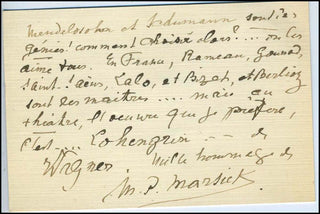 Mendelssohn et Schumann sont des
génies! comment choisir alors?.... on les
aime tous. En France, Rameau, Gounod,
Saint-Saëns, Lalo, et Bizet, et Berlioz
sont des maîtres.... mais au
théâtre, l'oeuvre que je préfère,
c'est.... Lohengrin --- de
Wagner
Mille hommages de
M. P. Marsick